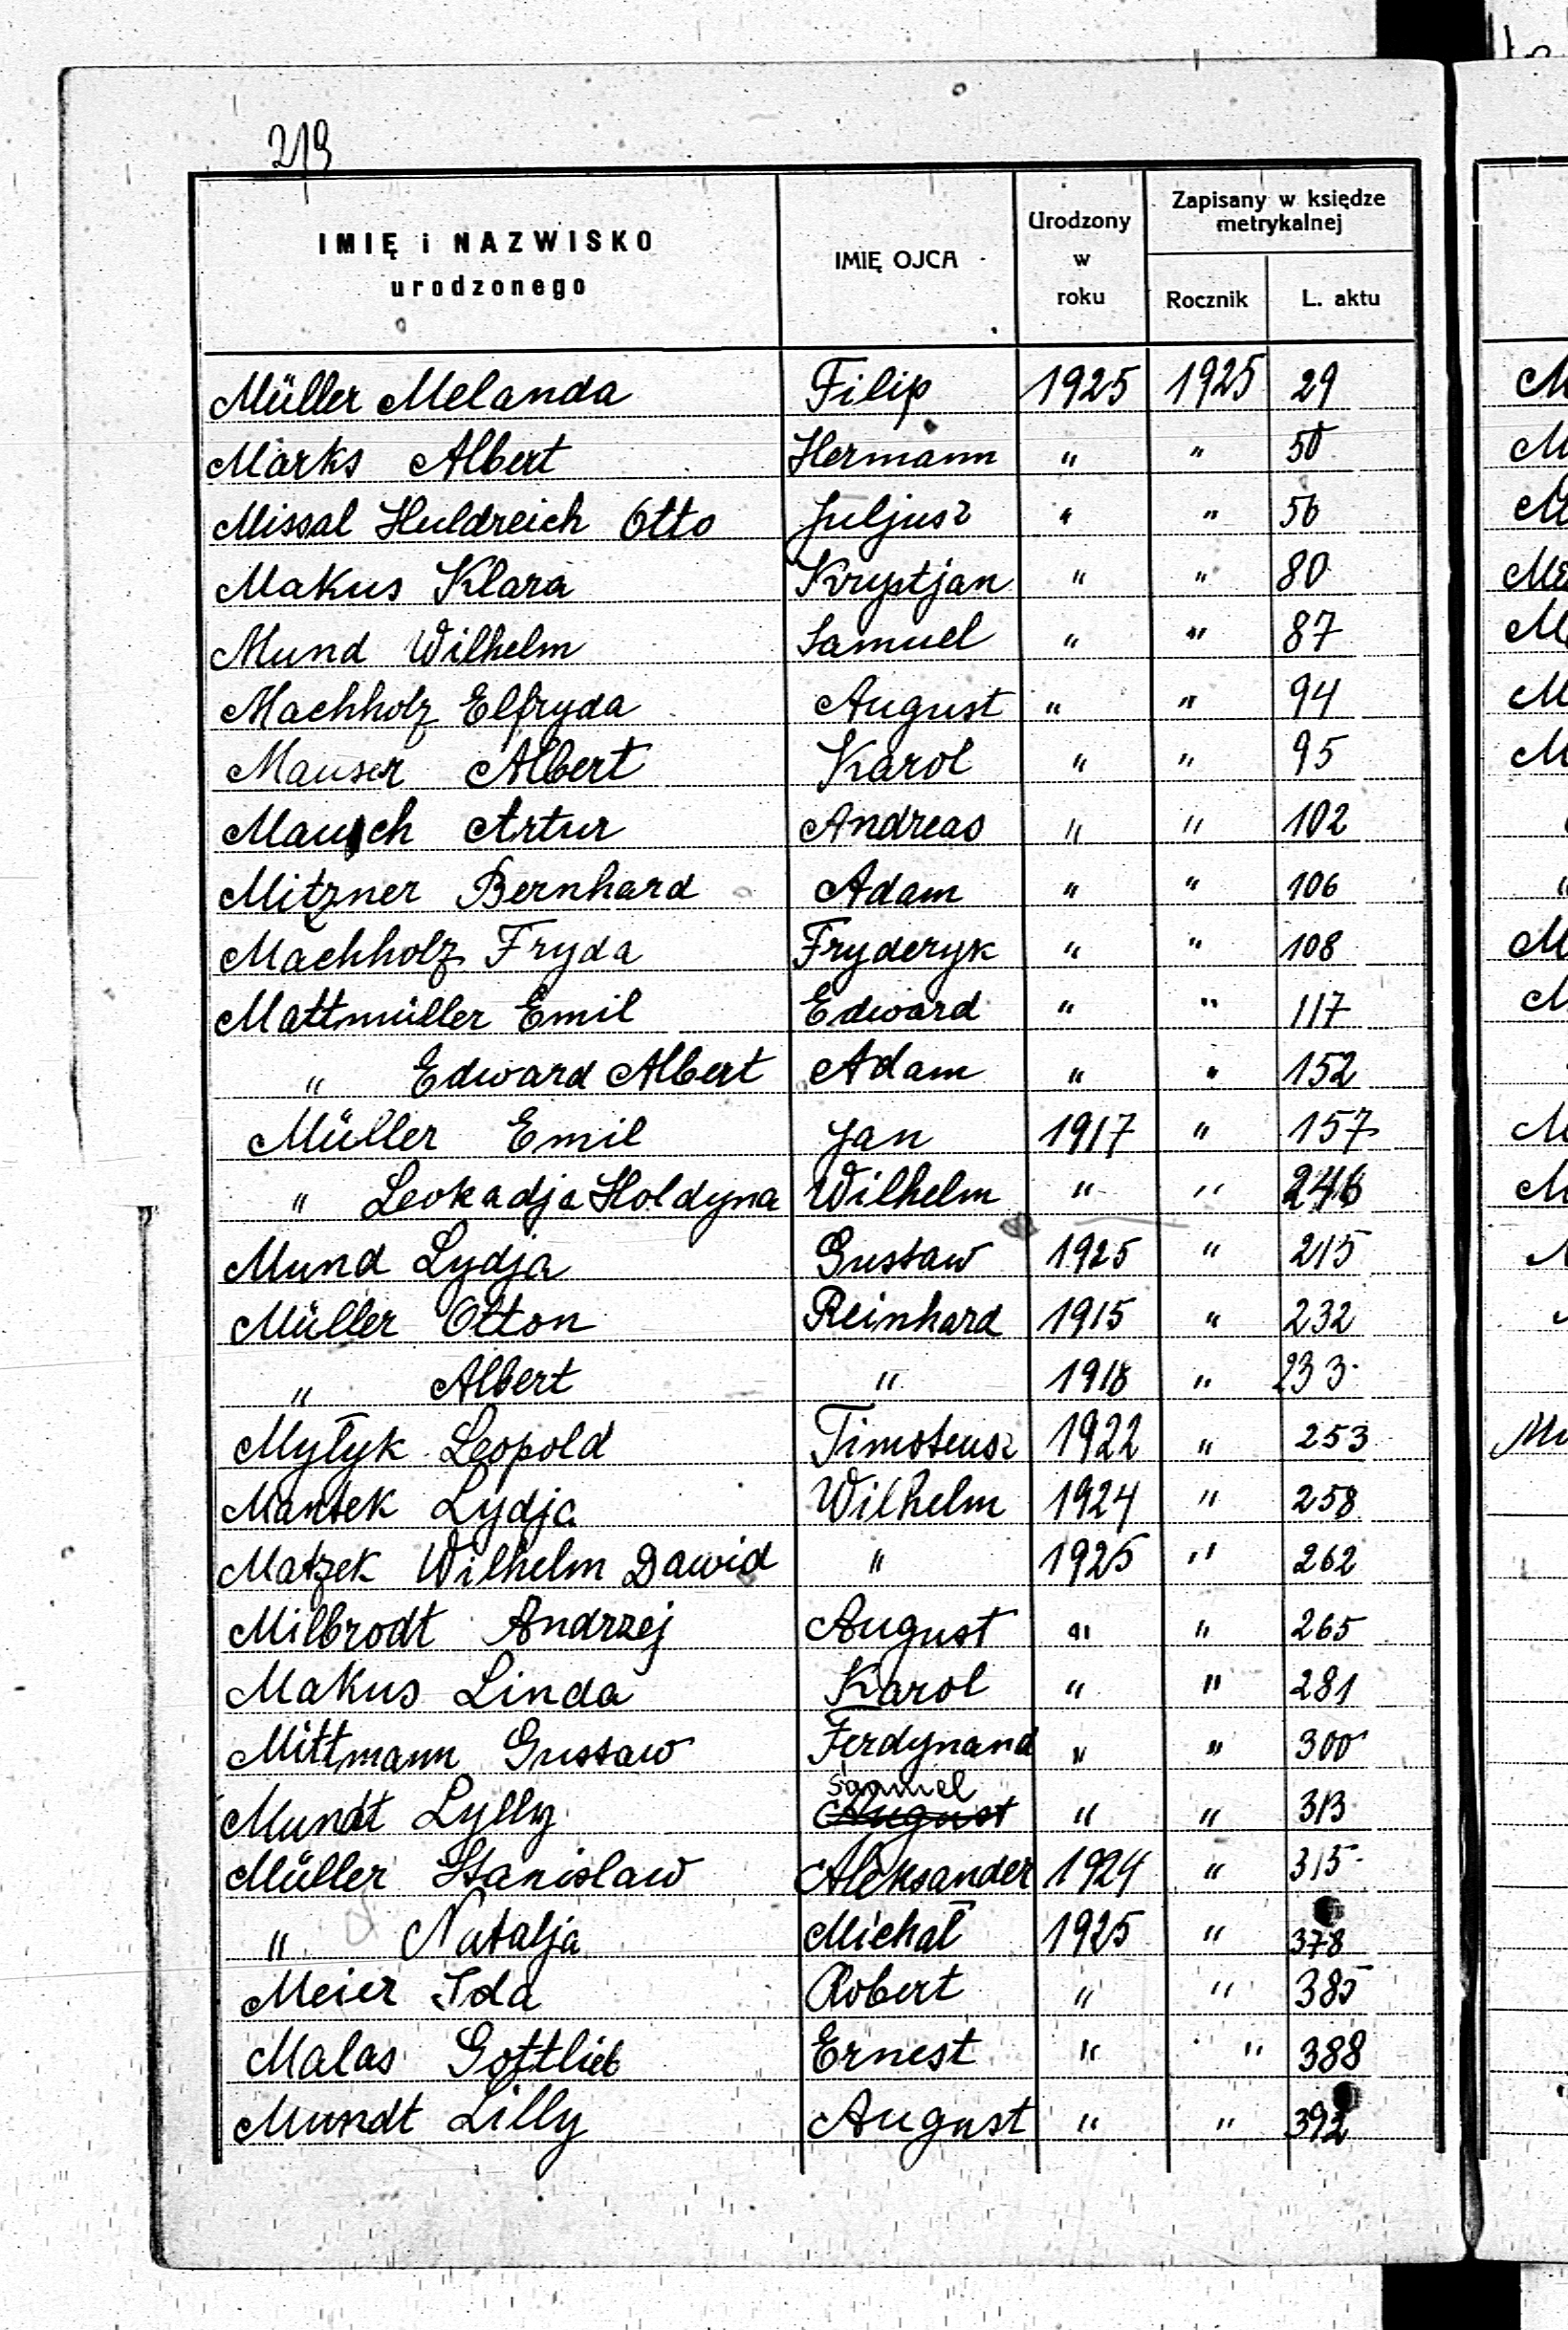 219
IMIĘ i NAZWISKO urodzonego | IMIĘ OJCA | Urodzony w roku | Zapisany w księdze metrykalnej
Rocznik | L. aktu
Müller Melanda | Filip | 1925 | 1925 | 29
Marks Albert | Hermann | " | " | 50
Missal Huldreich Otto | Juljusz | " | " | 56
Makus Klara | Krystjan | " | " | 80
Mund Wilhelm | Samuel | " | " | 87
Machholz Elfryda | August | " | " | 94
Mauser Albert | Karol | " | " | 95
Mauch Artur | Andreas | " | " | 102
Mitzner Bernhard | Adam | " | " | 106
Machholz Fryda | Fryderyk | " | " | 108
Mattmüller Emil | Edward | " | " | 117
" Edward Albert | Adam | " | " | 152
Müller Emil | Jan | 1917 | " | 157
" Leokadja Holdyna | Wilhelm | " | "
Mund Lydja | Gustaw | 1925 | " | 215
Müller Otton | Reinhard | 1915 | " | 232
" Albert | " | 1918 | " | 233
Mytyk Leopold | Timoteusz | 1922 | " | 253
Mantek Lydja | Wilhelm | 1924 | " | 258
Matzek Wilhelm Dawid | " | 1925 | " | 262
Milbrodt Andrzej | August | " | " | 265
Makus Linda | Karol | " | " | 281
Mittmann Gustaw | Ferdynand | " | " | 300
Mundt Lylly | August Samuel | " | " | 313
Müller Stanislaw | Aleksander | 1924 | " | 315
" Natalja | Michał | 1925 | " | 378
Meier Ida | Robert | " | " | 385
Malas Gottlieb | Ernest | " | " | 388
Mundt Lilly | August | " | " | 392